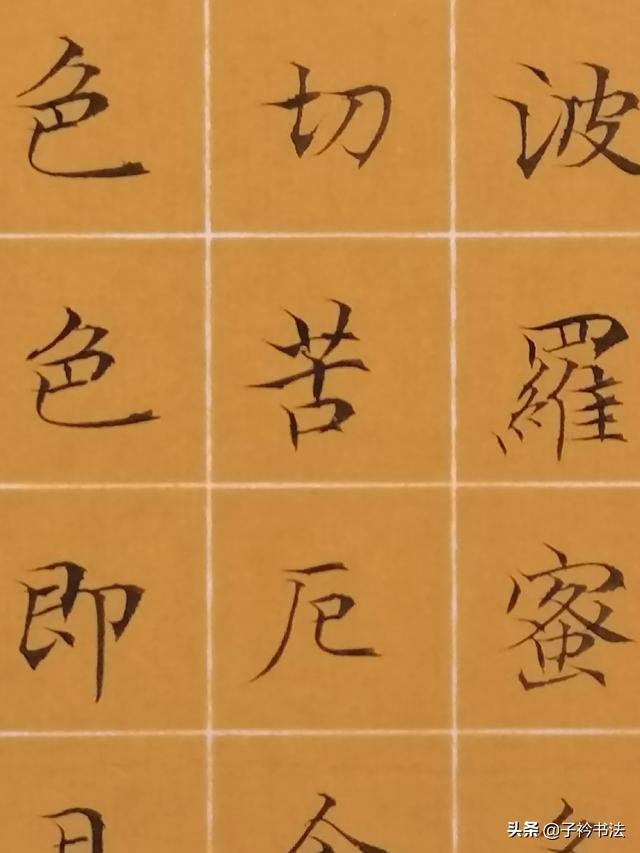 波羅蜜多
切苦厄舍
色色即是
头条 @子衿书法